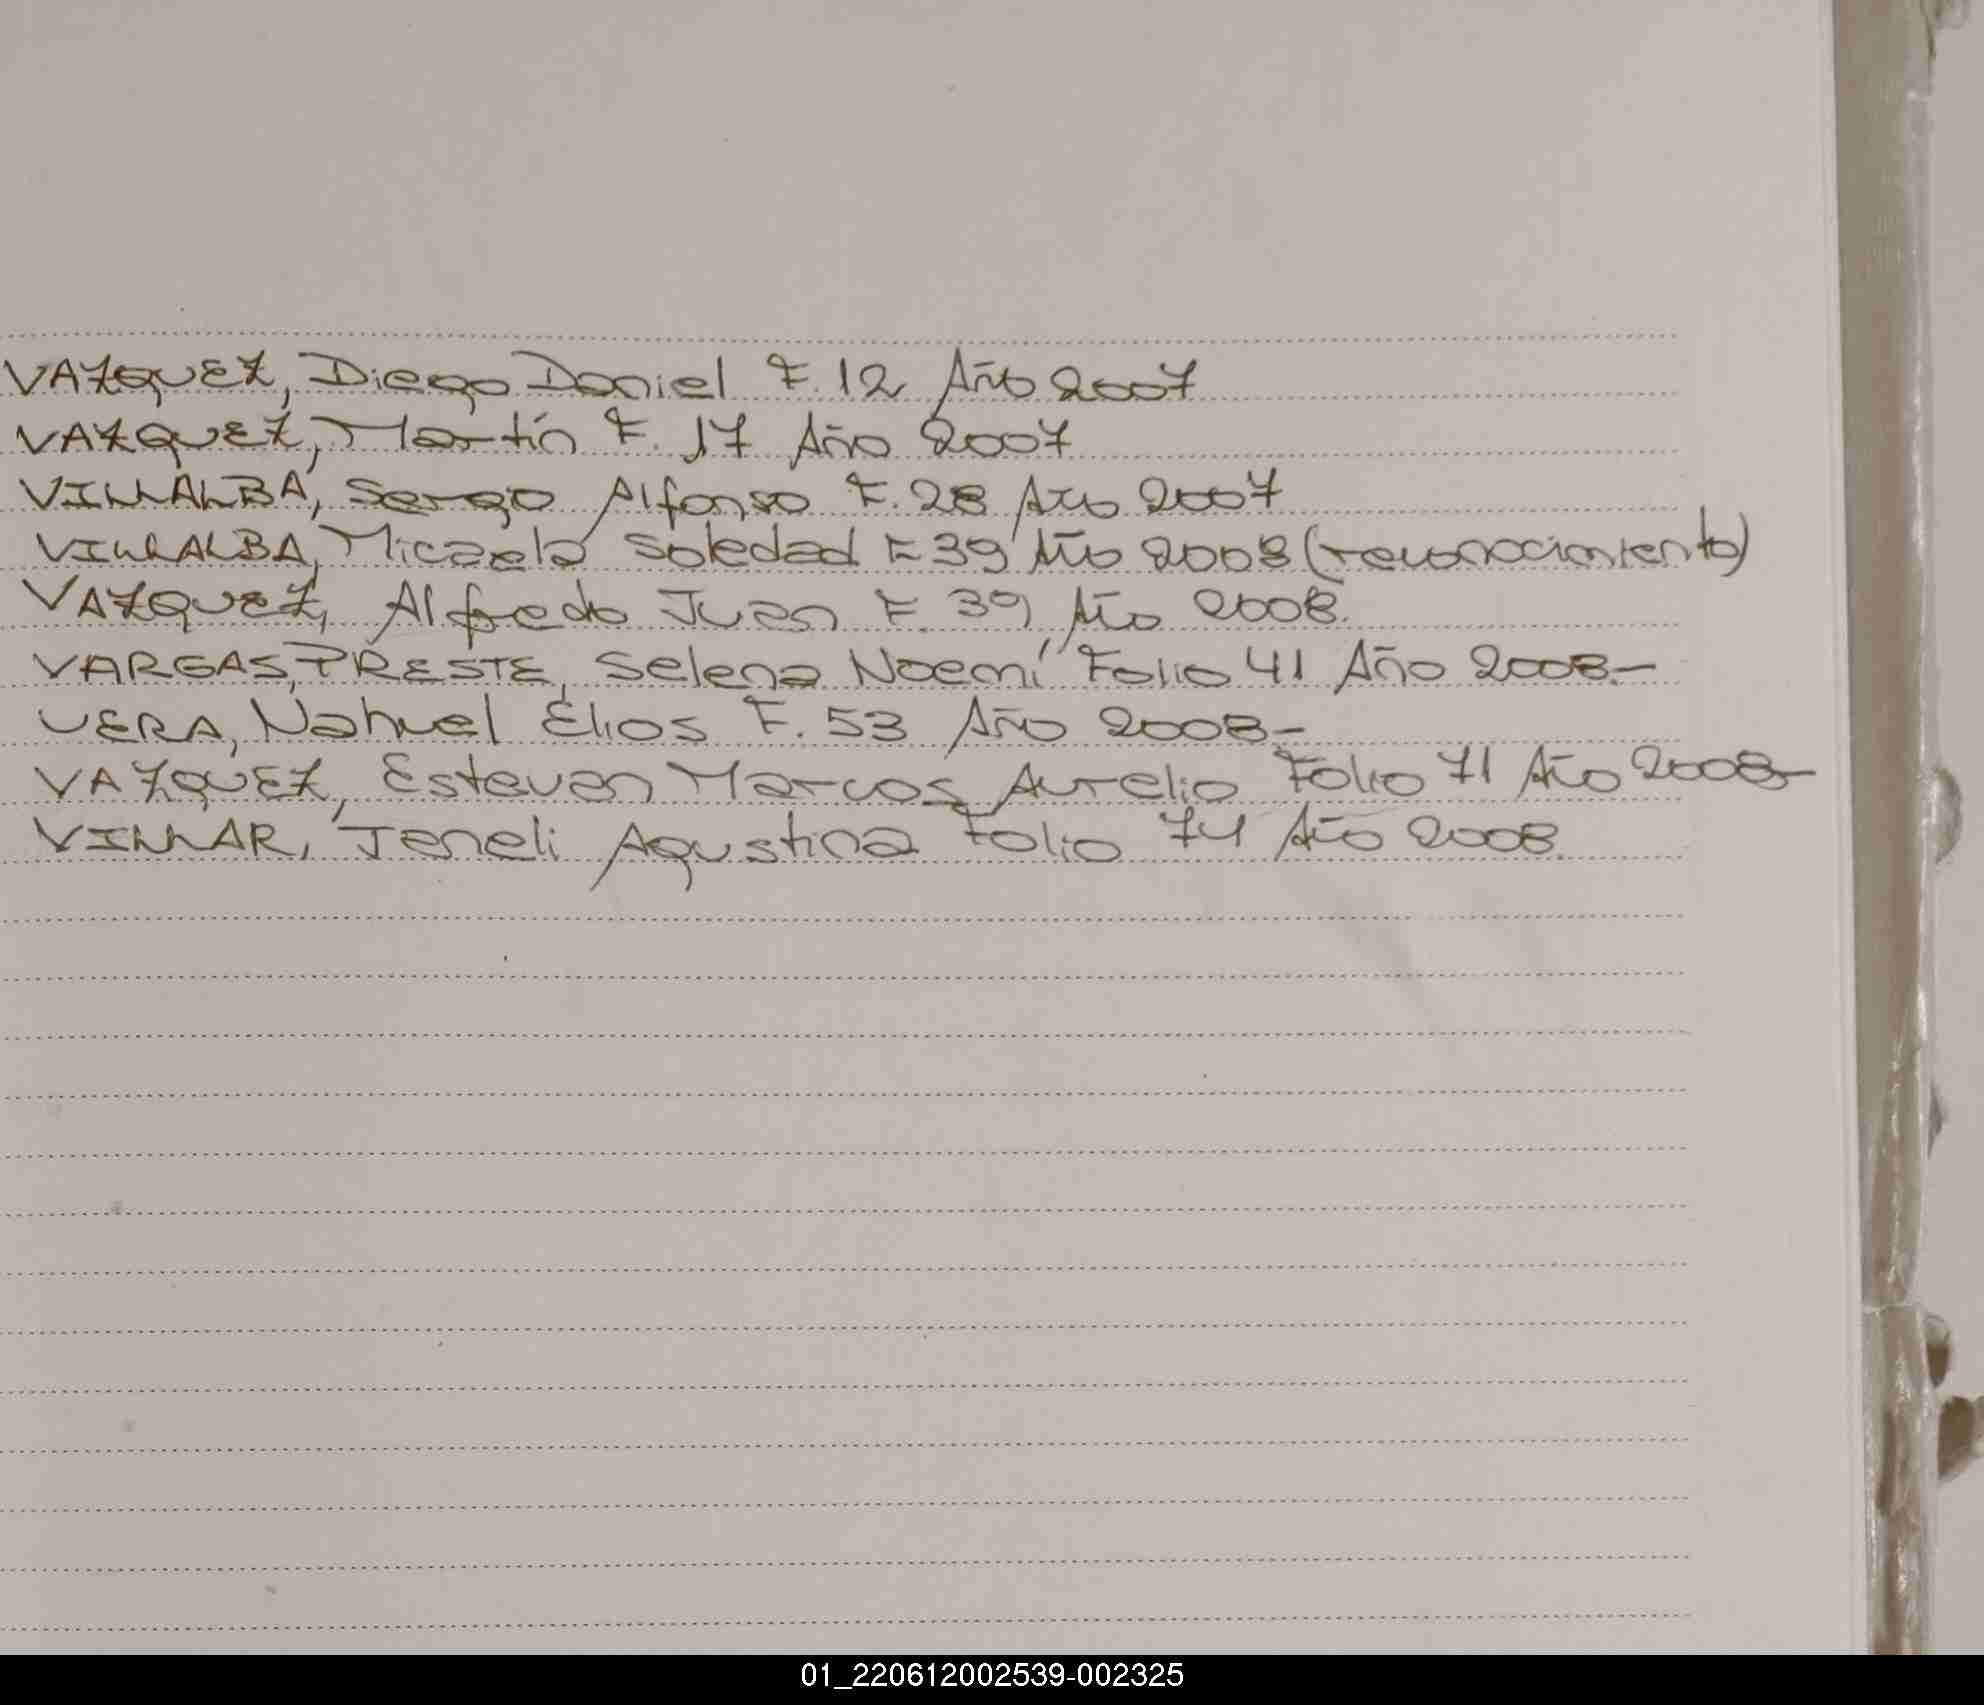 VAZQUEZ, Diego Daniel F. 12 Año 2007
VAZQUEZ, Martín F. 17 Año 2007
VILLALBA, Sergio Alfonso F. 28 Año 2007
VILLALBA, Micaela Soledad F 39 Año 2008 (reconocimiento)
VAZQUEZ, Alfredo Juan F. 39 Año 2008.
VARGAS, PRESTE, Selena Noemí Folio 41 Año 2008.-
VERA, Nahuel Elios F. 53 Año 2008-
VAZQUEZ, Estevan Marcos Aurelio Folio 71 Año 2008-
VILLAR, Jeneli Agustina Folio 74 Año 2008.
01_220612002539-002325